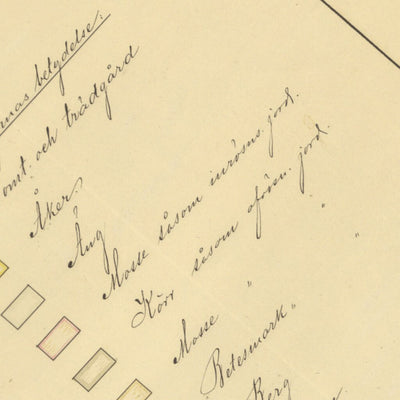 rnas betydelse:
omt och trädgård
Åker.
Äng
Mosse såsom inrösn. jord.
Kärr såsom afrösn. jord.
Mosse " "
Betesmark " "
Berg